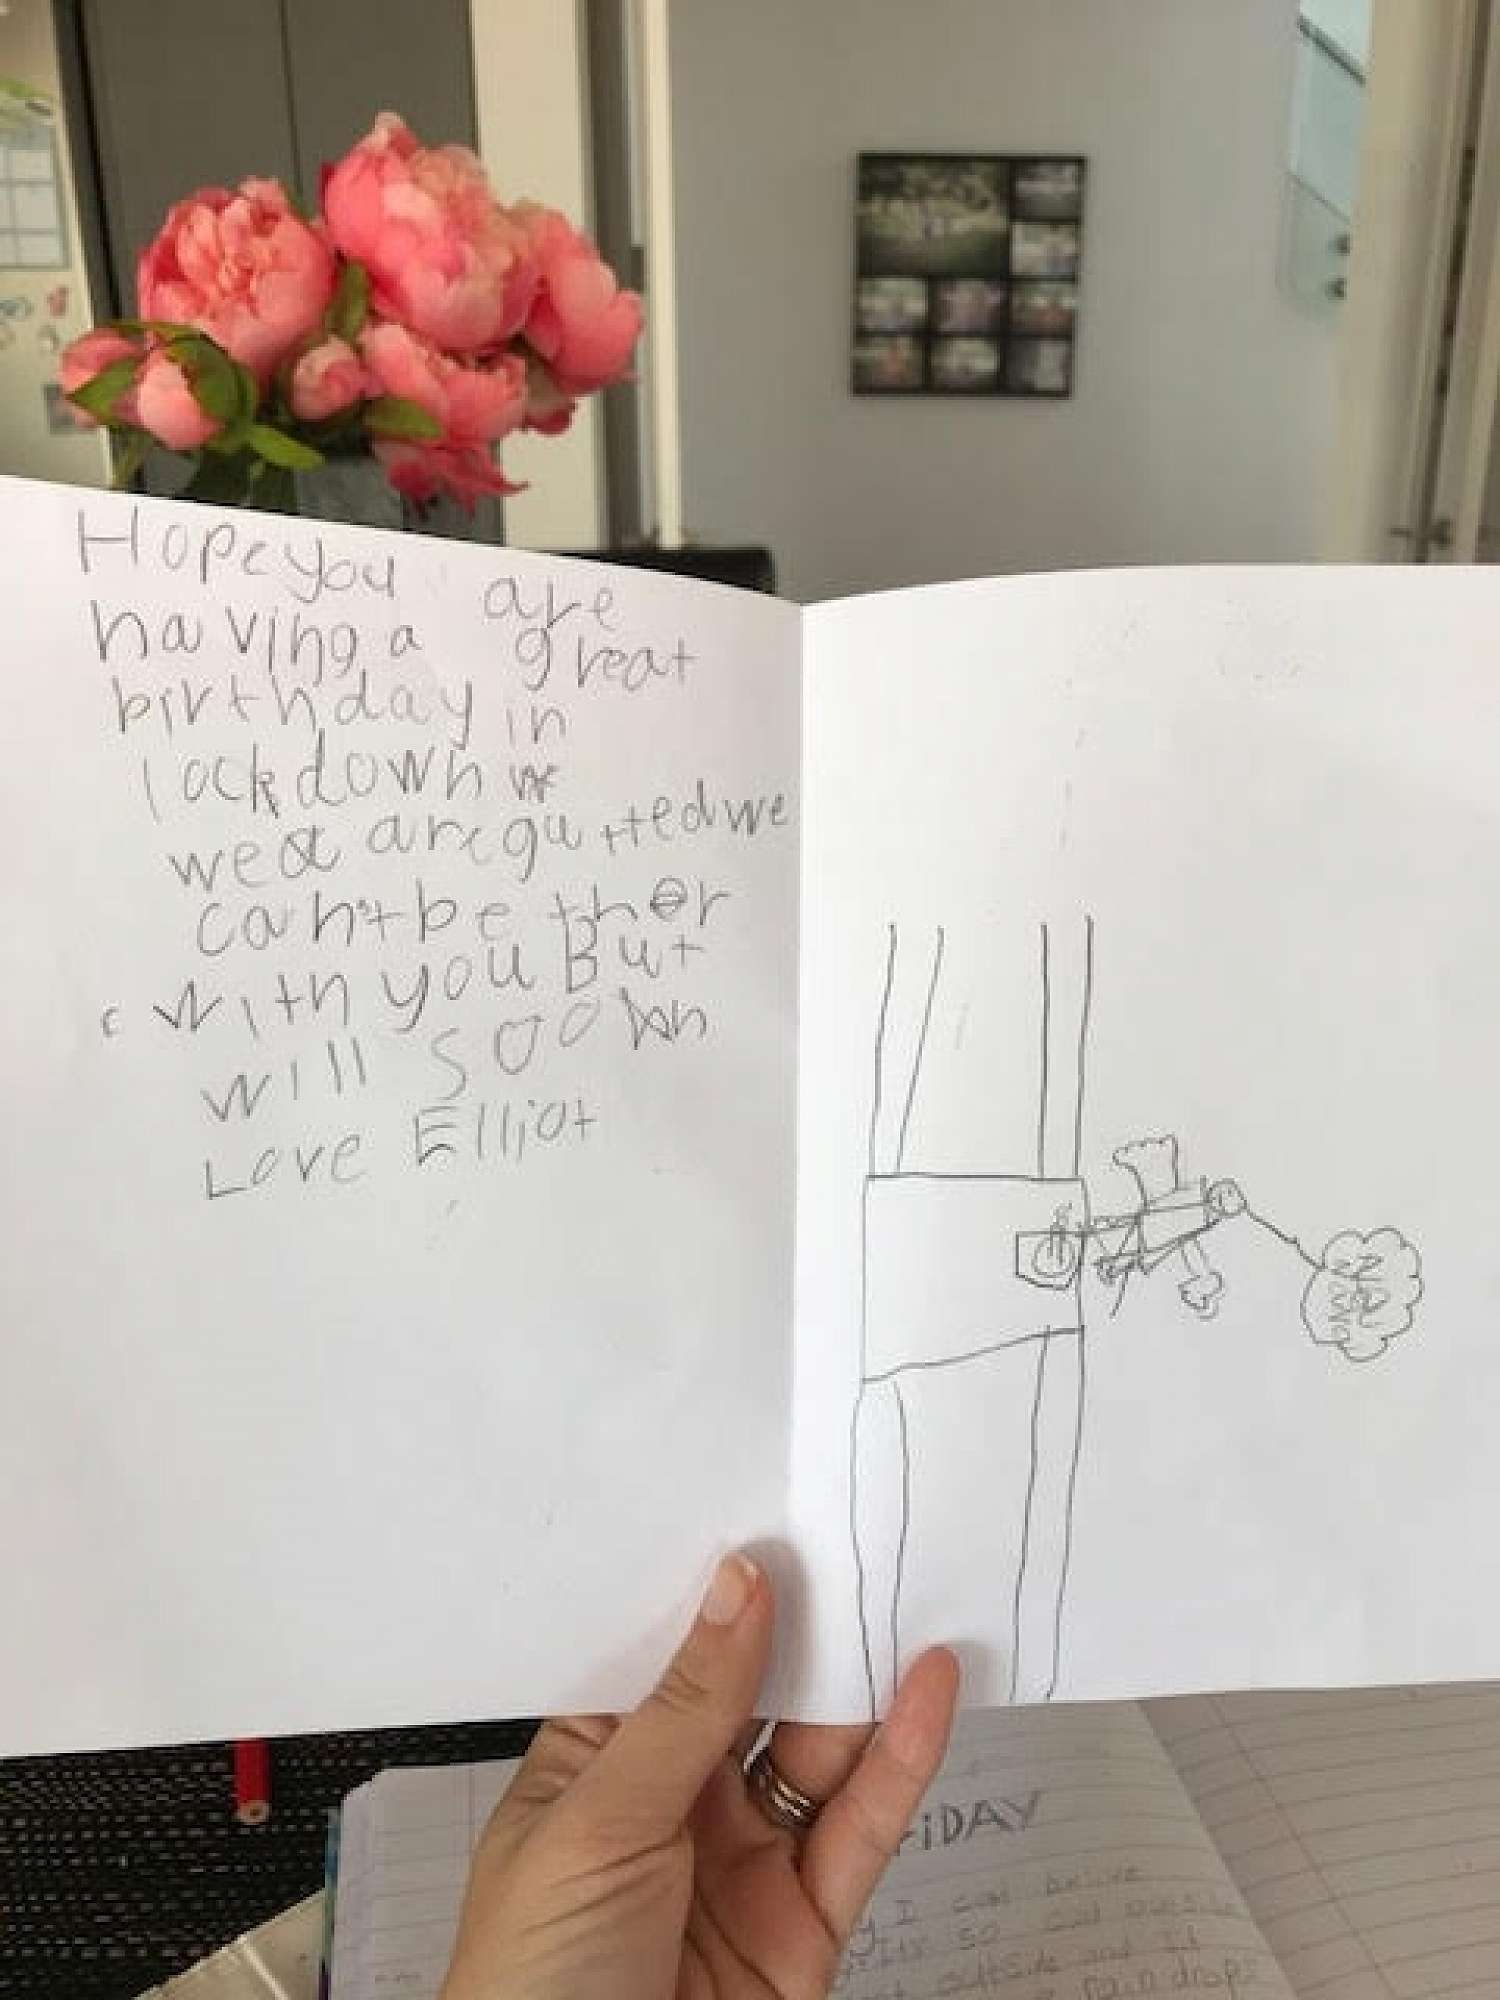 Hope you are
having a great
birthday in
lockdown we
we are gutted we
can't be ther
with you But
will soon
Love Elliot
FRiDAY
I can belive
so cold outside
outside and It
rain drops